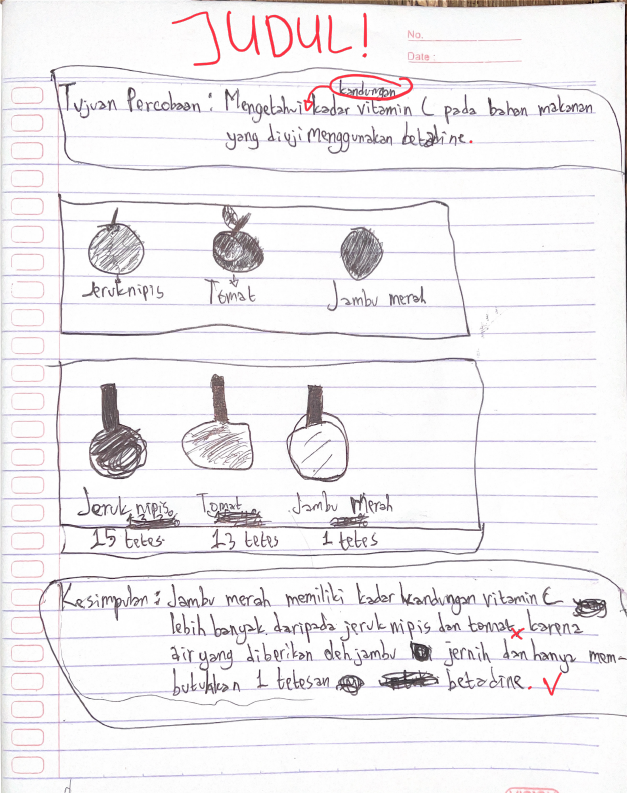 JUDUL!
No.
Date :
kandungan
Tujuan Percobaan : Mengetahui kadar vitamin C pada bahan makanan
yang diuji menggunakan betadine.
Jeruk nipis Tomat Jambu merah
Jeruk nipis Tomat Jambu Merah
15 tetes 13 tetes 1 tetes
Kesimpulan : Jambu merah memiliki kadar kandungan vitamin C
lebih banyak daripada jeruk nipis dan tomat x karena
air yang diberikan oleh jambu jernih dan hanya mem-
butuhkan 1 tetesan betadine. ✓